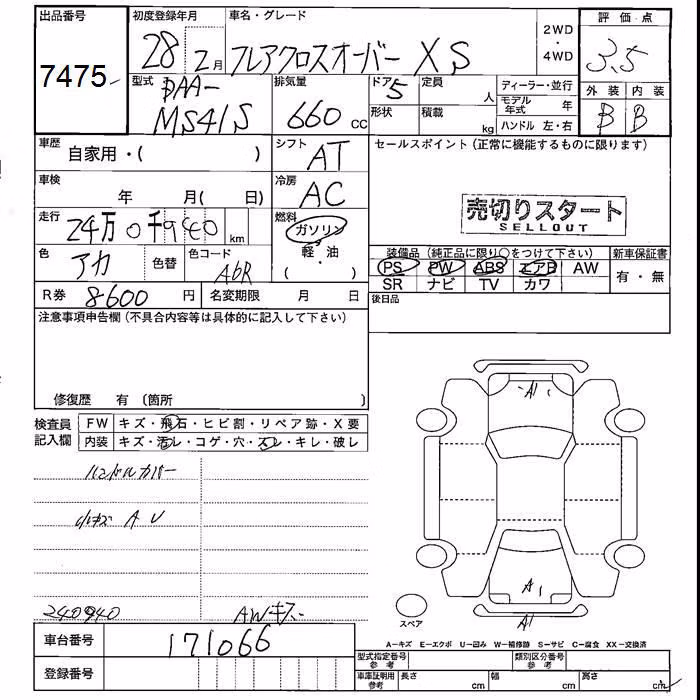 出品番号 初度登録年月 車名・グレード 2WD・4WD 評価点
7475 28年2月 フレアクロスオーバー XS 3.5
型式 DAA-MS41S 排気量 660 cc
ドア 5 定員 人 ディーラー・並行
形状 積載 kg モデル年式 年
ハンドル 左・右
外装 内装
B B
車歴 自家用・( ) シフト AT
セールスポイント(正常に機能するものに限ります)
車検 年 月( 日) 冷房 AC
売切りスタート
SELLOUT
走行 24万0千940 km 燃料 ガソリン・軽油 ( )
色 アカ 色替 色コード A6R
装備品(純正品に限り○をつけて下さい) 新車保証書
PS PW ABS エアB AW 有・無
SR ナビ TV カワ
R券 8600 円 名変期限 月 日
後日品
注意事項申告欄(不具合内容等は具体的に記入して下さい)
修復歴 有 (箇所 )
検査員記入欄 FW キズ・飛石・ヒビ割・リペア跡・X要
内装 キズ・汚レ・コゲ・穴・スレ・キレ・破レ
ハンドルカバー
小キズ A U
240940 AWキズ
A1
A1
A1
スペア
A-キズ E-エクボ U-凹み W-補修跡 S-サビ C-腐食 XX-交換済
車台番号 171066
型式指定番号 参考 類別区分番号 参考
登録番号
車庫証明用 参考 長さ cm 幅 cm 高さ cm